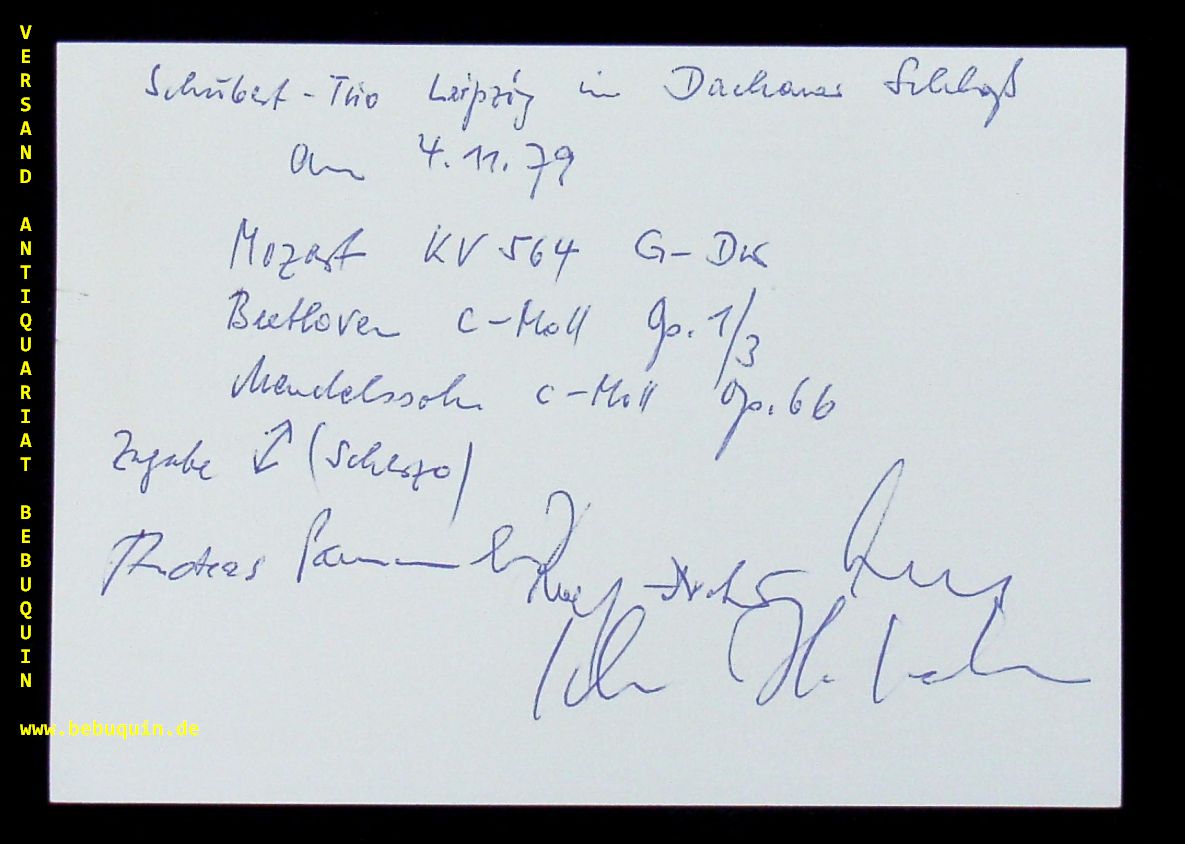 VERSAND ANTIQUARIAT BEBUQUIN
www.bebuquin.de
Schubert-Trio Leipzig im Dachauer Schloß
am 4.11.79
Mozart KV 564 G-Dur
Beethoven c-Moll Op. 1/3
Mendelssohn c-Moll Op. 66
Zugabe (Scherzo)